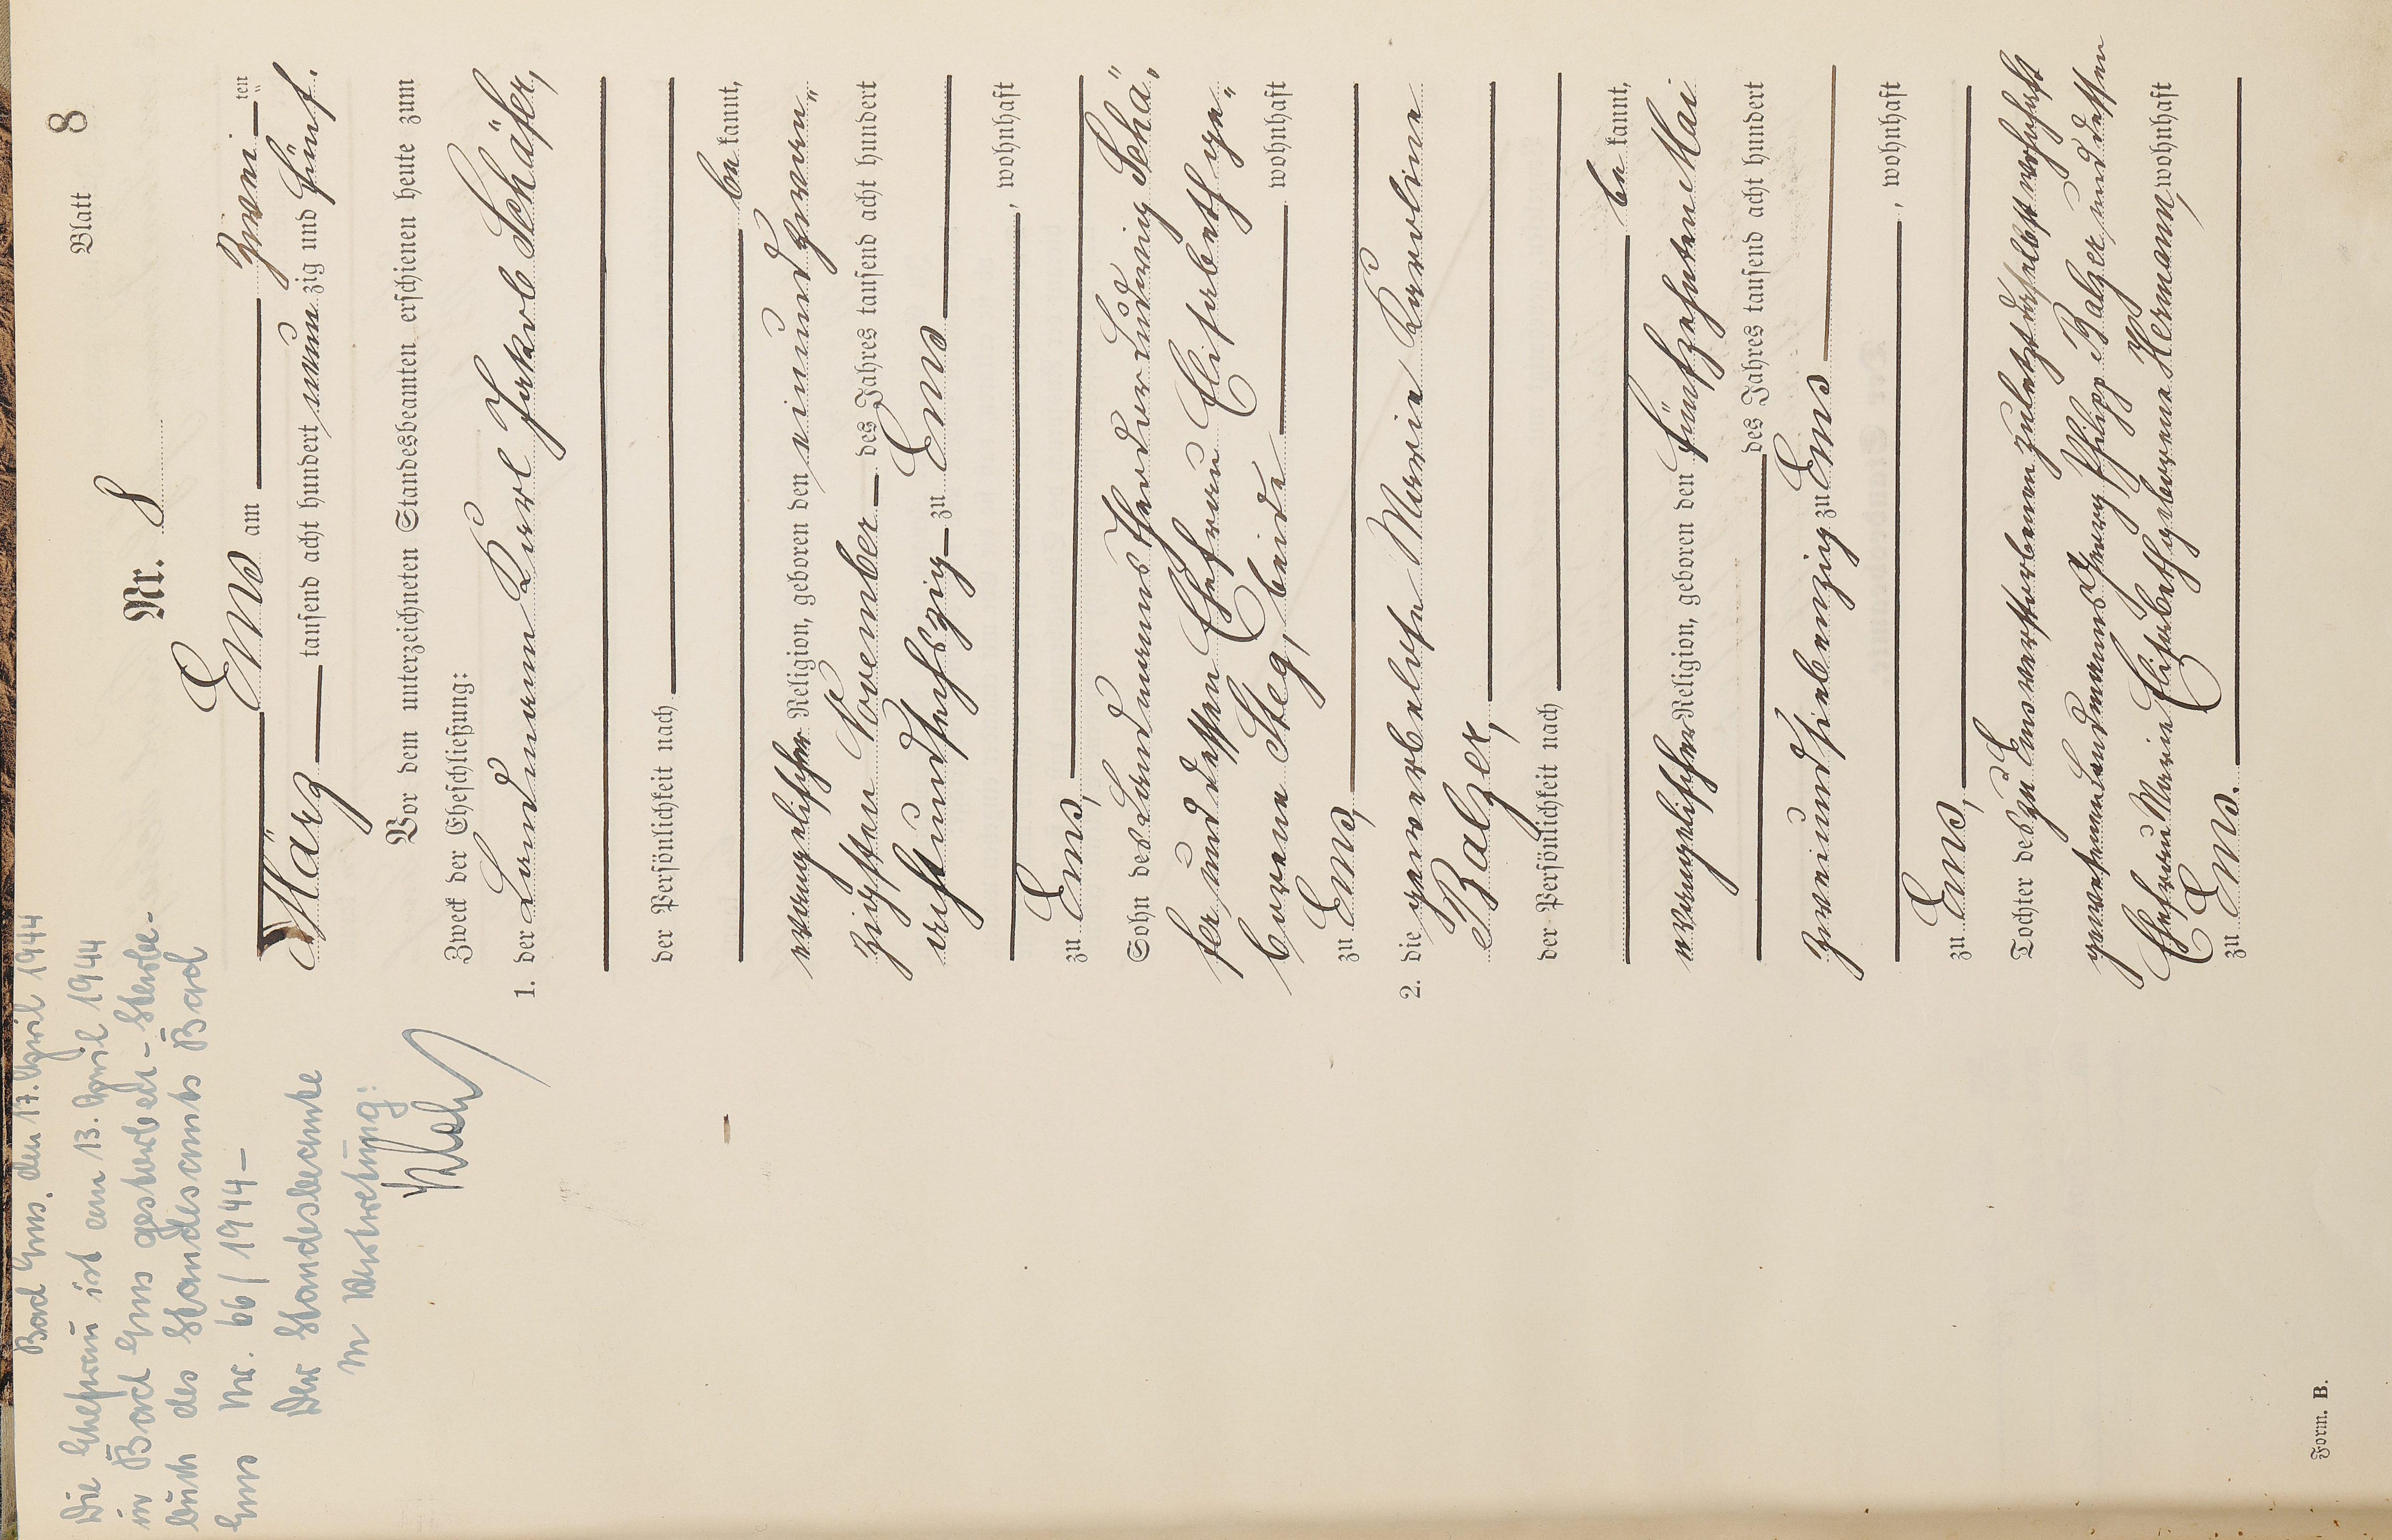 Blatt 8
Nr. 8
Ems am Zwei ten
März tausend acht hundert neunzig und fünf.
Vor dem unterzeichneten Standesbeamten erschienen heute zum
Zweck der Eheschließung:
1. der Landmann Karl Jakob Schäfer,
der Persönlichkeit nach
be kannt,
evangelischer Religion, geboren den einundzwan„
zigsten November des Jahres tausend acht hundert
achtundsechszig zu Ems
, wohnhaft
zu Ems,
Sohn des Landmanns Theodor Ludwig Schä„
fer und dessen Ehefrau Elisabeth ge„
borene Steg, beide wohnhaft
zu Ems,
2. die gewerbelose Marie Karoline
Balzer,
der Persönlichkeit nach
be kannt,
evangelischer Religion, geboren den fünfzehnten Mai
des Jahres tausend acht hundert
zweiundsiebenzig zu Ems
, wohnhaft
zu Ems,
Tochter des zu Ems verstorbenen zuletzt daselbst wohnhaft
gewesenen Landmanns Georg Philipp Balzer und dessen
Ehefrau Marie Elisabeth geborene Hermann, wohnhaft
zu Ems.
Bad Ems, den 17. April 1944
Die Ehefrau ist am 13. April 1944
in Bad Ems gestorben - Sterbe-
buch des Standesamts Bad
Ems Nr. 66/1944 -
Der Standesbeamte
In Vertretung:
Form. B.